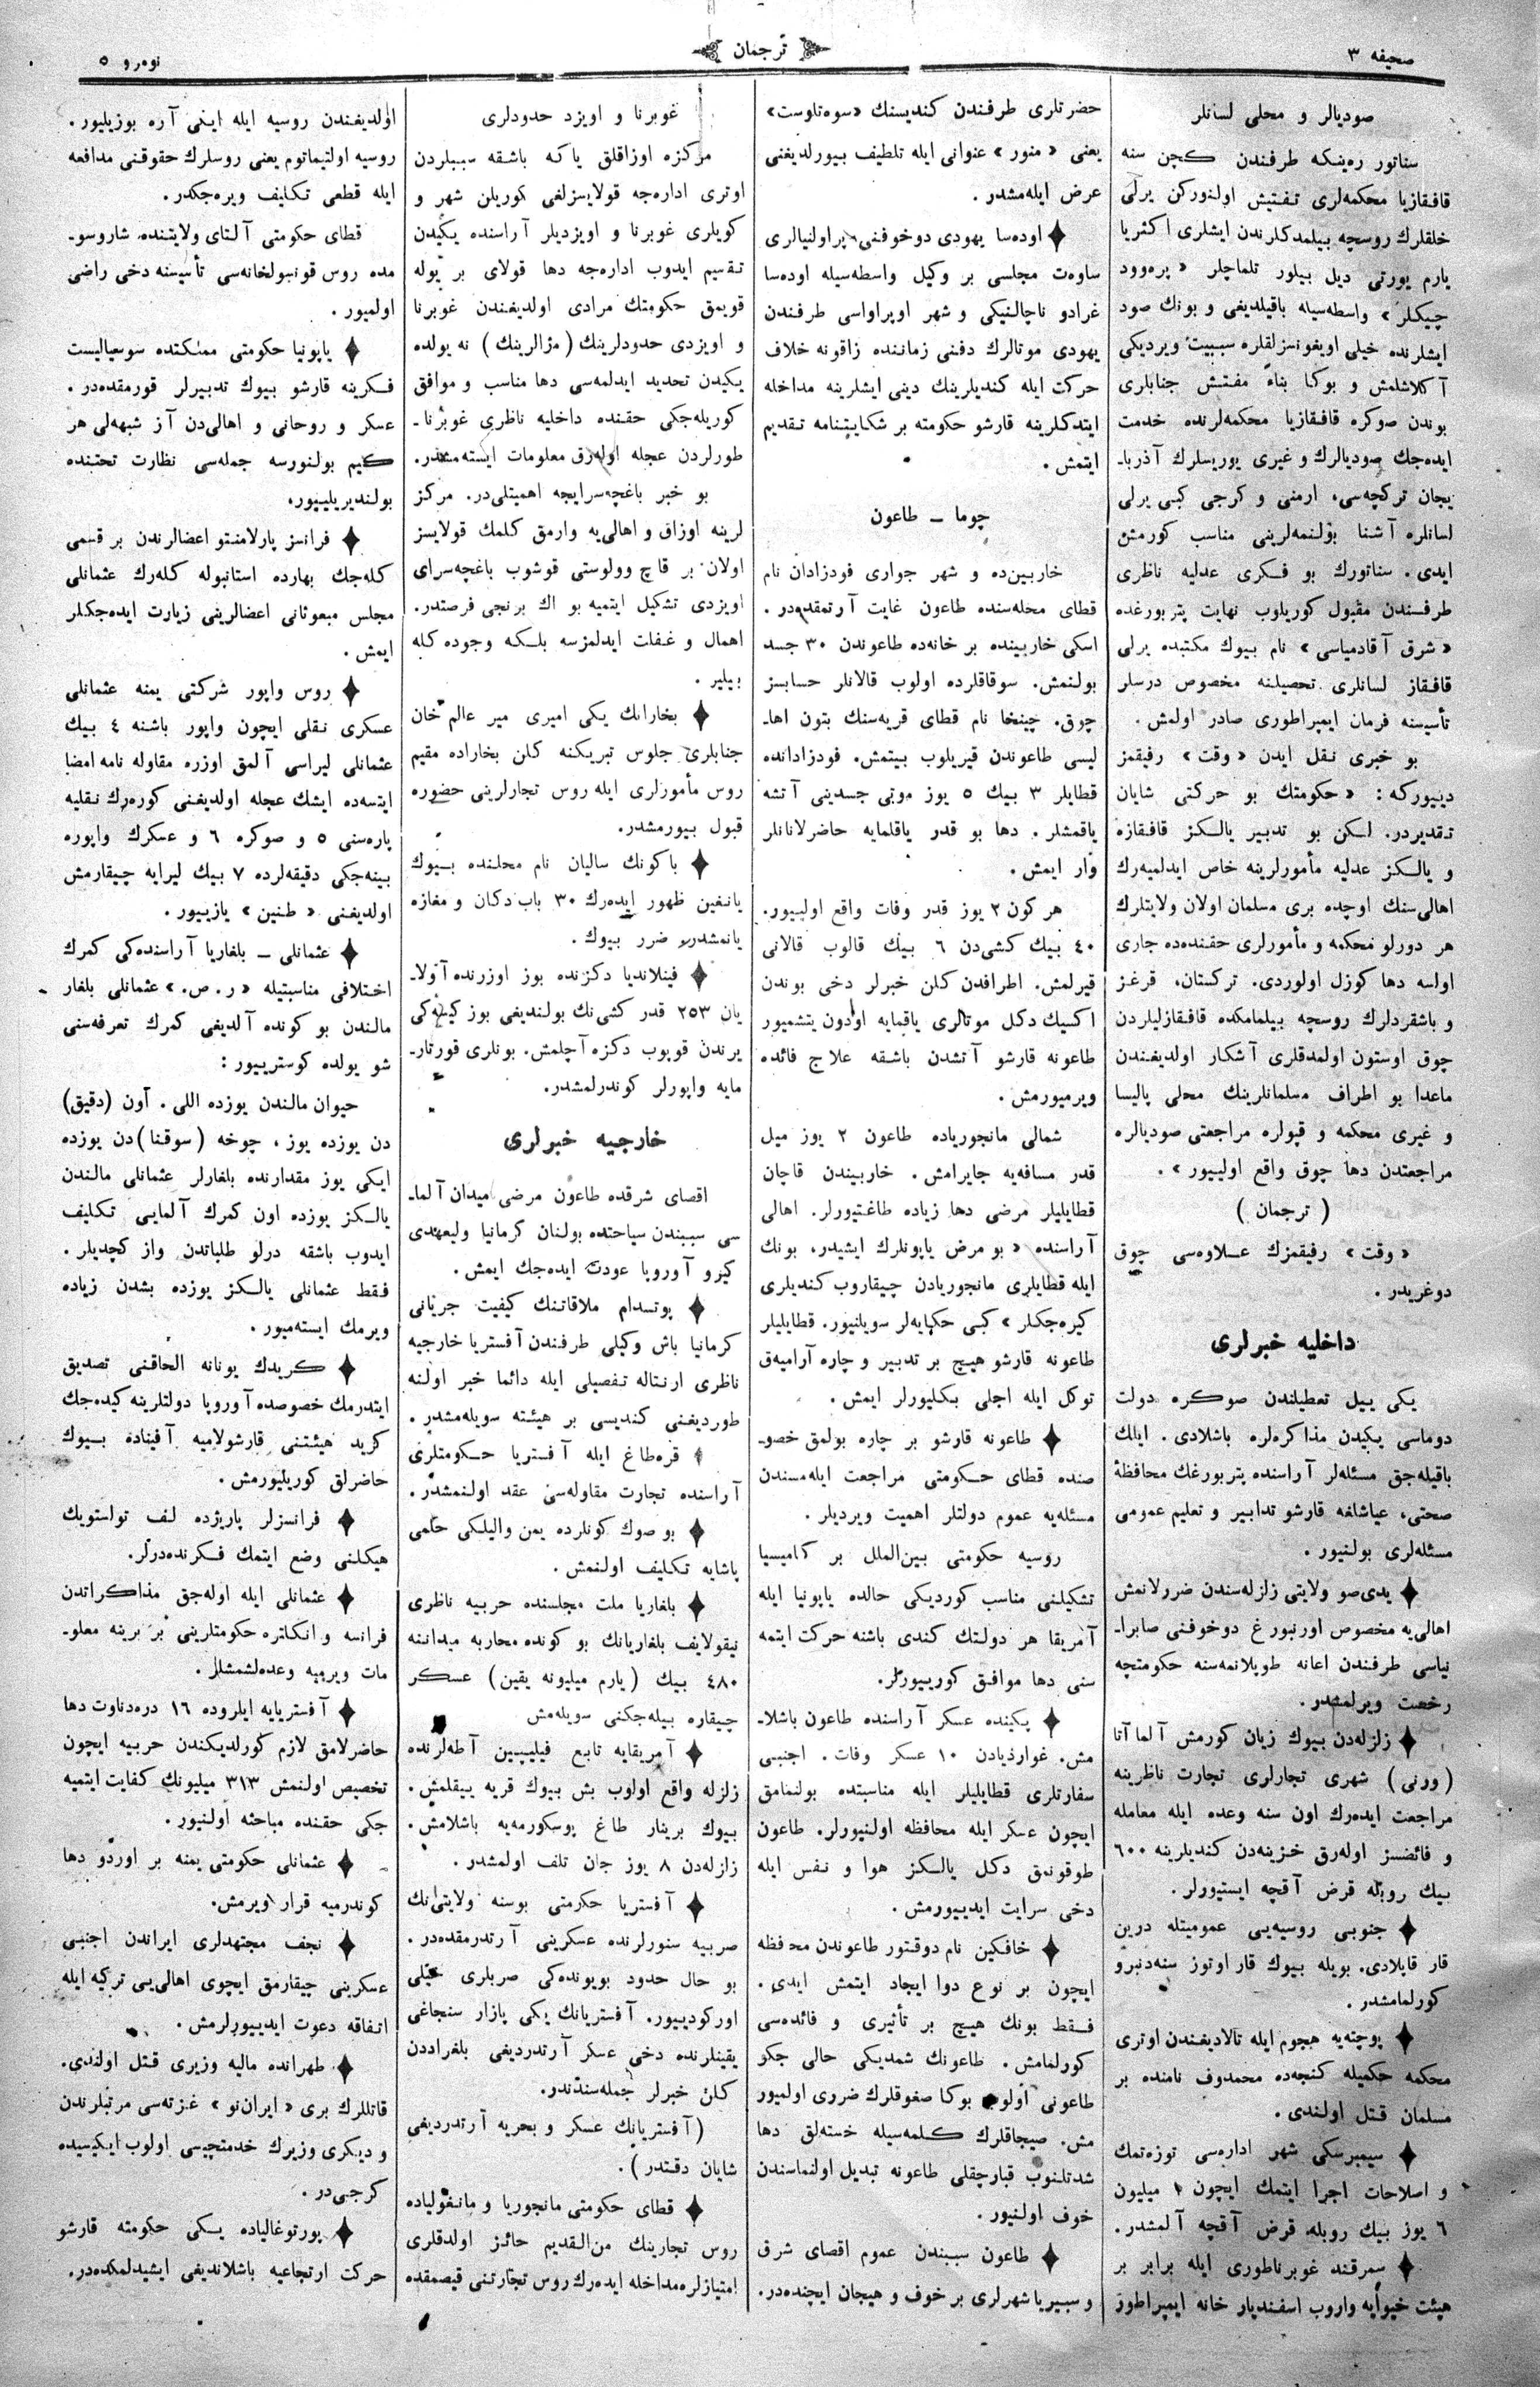 صحیفه ۳
ترجمان
نومرو ۵
صودیالر و محلی لسانلر
سناتور ره‌ینکه طرفندن کچن سنه
قافقازیا محکمه‌لری تفتیش اولنورکن یرلی
خلقلرك روسچه بیلمدکلرندن ایشلری اکثریا
یارم یورتی دیل بیلور تلماچلر « پره‌وود
چیکلر » واسطه‌سیله باقیلدیغی و بونك صود
ایشلرنده خیلی اویغونسزلقلره سببیت ویردیکی
آکلاشلمش و بوکا بناءً مفتش جنابلری
بوندن صوکره قافقازیا محکمه‌لرنده خدمت
ایده‌جك صودیالرك و غیری یوریسلرك آذربا۔
یجان ترکچه‌سی، ارمنی و کرجی کبی یرلی
لسانلره آشنا بولنمه‌لرینی مناسب کورمش
ایدی. سناتورك بو فکری عدلیه ناظری
طرفندن مقبول کوریلوب نهایت پتربورغده
« شرق آقادمیاسی » نام بیوك مکتبده یرلی
قافقاز لسانلری تحصیلنه مخصوص درسلر
تأسیسنه فرمان ایمپراطوری صادر اولمش.
بو خبری نقل ایدن « وقت » رفیقمز
دییورکه : « حکومتك بو حرکتی شایان
تقدیردر. لکن بو تدبیر یالکز قافقازه
و یالکز عدلیه مأمورلرینه خاص ایدلمیه‌رك
اهالی‌سنك اوچده بری مسلمان اولان ولایتلرك
هر دورلو محکمه و مأمورلری حقنده‌ده جاری
اولسه دها کوزل اولوردی. ترکستان، قرغز
و باشقردلرك روسچه بیلمامکده قافقازلیلردن
چوق اوستون اولمدقلری آشکار اولدیغندن
ماعدا بو اطراف مسلمانلرینك محلی پالیسا
و غیری محکمه و قپولره مراجعتی صودیالره
مراجعتدن دها چوق واقع اولییور ».
( ترجمان )
« وقت » رفیقمزك علاوه‌سی چوق
دوغریدر.
داخلیه خبرلری
یکی ییل تعطیلندن صوکره دولت
دوماسی یکیدن مذاکره‌لره باشلادی. ایلك
باقیله‌جق مسئله‌لر آراسنده پتربورغك محافظهٔ
صحتی، عیاشلغه قارشو تدابیر و تعلیم عمومی
مسئله‌لری بولنیور.
یدی‌صو ولایتی زلزله‌سندن ضررلانمش
اهالی‌یه مخصوص اورنبورغ دوخوفنی صابرا۔
نیاسی طرفندن اعانه طوپلانمه‌سنه حکومتچه
رخصت ویرلمشدر.
زلزله‌دن بیوك زیان کورمش آلما آتا
(ورنی) شهری تجارلری تجارت ناظرینه
مراجعت ایده‌رك اون سنه وعده ایله معامله
و فائضسز اوله‌رق خزینه‌دن کندیلرینه ٦٠٠
بیك روبله قرض آقچه ایستیورلر.
جنوبی روسیه‌یی عمومیتله درین
قار قاپلادی. بویله بیوك قار اوتوز سنه‌دنبرو
کورلمامشدر.
پوچته‌یه هجوم ایله تالادیغندن اوتری
محکمه حکمیله کنجه‌ده محمدوف نامنده بر
مسلمان قتل اولندی.
سیمبرسکی شهر اداره‌سی توزه‌تمك
و اصلاحات اجرا ایتمك ایچون ١ میلیون
٦ یوز بیك روبله قرض آقچه آلمشدر.
سمرقند غوبرناطوری ایله برابر بر
هیئت خیوایه واروب اسفندیار خانه ایمپراطور
حضرتلری طرفندن کندیسنك « سوه‌تلوست»
یعنی « منور » عنوانی ایله تلطیف بیورلدیغنی
عرض ایله‌مشدر.
اوده‌سا یهودی دوخوفنی پراولنیالری
ساوه‌ت مجلسی بر وکیل واسطه‌سیله اوده‌سا
غرادو ناچالنیکی و شهر اوپراواسی طرفندن
یهودی موتالرك دفنی زماننده زاقونه خلاف
حرکت ایله کندیلرینك دینی ایشلرینه مداخله
ایتدکلرینه قارشو حکومته بر شکایتنامه تقدیم
ایتمش.
چوما ـ طاعون
خاربین‌ده و شهر جواری فودزادان نام
قطای محله‌سنده طاعون غایت آرتمقده‌در.
اسکی خاربینده بر خانه‌ده طاعوندن ۳۰ جسد
بولنمش. سوقاقلرده اولوب قالانلر حسابسز
چوق. چینخا نام قطای قریه‌سنك بتون اها۔
لیسی طاعوندن قیریلوب بیتمش. فودزاداننده
قطایلر ۳ بیك ٥ یوز موتی جسدینی آتشه
یاقمشلر. دها بو قدر یاقلمایه حاضرلانانلر
وار ایمش.
هر کون ۲ یوز قدر وفات واقع اولییور.
٤٠ بیك کشی‌دن ٦ بیك قالوب قالانی
قیرلمش. اطرافدن کلن خبرلر دخی بوندن
اکسیك دکل موتالری یاقمایه اودون یتشمیور
طاعونه قارشو آتشدن باشقه علاج فائده
ویرمیورمش.
شمالی مانجوریاده طاعون ۲ یوز میل
قدر مسافه‌یه جایرامش. خاربیندن قاچان
قطایلیلر مرضی دها زیاده طاغتیورلر. اهالی
آراسنده « بو مرض یاپونلرك ایشیدر، بونك
ایله قطایلری مانجوریادن چیقاروب کندیلری
کیره‌جکلر » کبی حکایه‌لر سویلنیور. قطایلیلر
طاعونه قارشو هیچ بر تدبیر و چاره آرامیه‌ق
توکل ایله اجلی بکلیورلر ایمش.
طاعونه قارشو بر چاره بولمق خصو۔
صنده قطای حکومتی مراجعت ایله‌مسندن
مسئله‌یه عموم دولتلر اهمیت ویردیلر.
روسیه حکومتی بین‌الملل بر کامیسیا
تشکیلنی مناسب کوردیکی حالده یاپونیا ایله
آمریقا هر دولتك کندی باشنه حرکت ایتمه
سنی دها موافق کورییورلر.
پکینده عسکر آراسنده طاعون باشلا۔
مش. غوارذیادن ١٠ عسکر وفات. اجنبی
سفارتلری قطایلیلر ایله مناسبتده بولنمامق
ایچون عسکر ایله محافظه اولنیورلر. طاعون
طوقونمق دکل یالکز هوا و نفس ایله
دخی سرایت ایدییورمش.
خافکین نام دوقتور طاعوندن محافظه
ایچون بر نوع دوا ایجاد ایتمش ایدی.
فقط بونك هیچ بر تأثیری و فائده‌سی
کورلمامش. طاعونك شمدیکی حالی جکر
طاعونی اولوب بوکا صغوقلرك ضرری اولمیور
مش. صیجاقلرك کلمه‌سیله خسته‌لق دها
شدتلنوب قبارچقلی طاعونه تبدیل اولنماسندن
خوف اولنیور.
طاعون سببندن عموم اقصای شرق
و سیبریا شهرلری بر خوف و هیجان ایچنده‌در.
غوبرنا و اویزد حدودلری
مرکزه اوزاقلق یاکه باشقه سببلردن
اوتری اداره‌جه قولایسزلغی کوریلن شهر و
کویلری غوبرنا و اویزدیلر آراسنده یکیدن
تقسیم ایدوب اداره‌جه دها قولای بر یوله
قویمق حکومتك مرادی اولدیغندن غوبرنا
و اویزدی حدودلرینك (مزالرینك) نه یولده
یکیدن تحدید ایدلمه‌سی دها مناسب و موافق
کوریله‌جکی حقنده داخلیه ناظری غوبرنا۔
طورلردن عجله اوله‌رق معلومات ایسته‌مشدر.
بو خبر باغچه‌سرایجه اهمیتلی‌در. مرکز
لرینه اوزاق و اهالی‌یه وارمق کلمك قولایسز
اولان بر قاچ وولوستی قوشوب باغچه‌سرای
اویزدی تشکیل ایتمیه بو اك برنجی فرصتدر.
اهمال و غفلت ایدلمزسه بلکه وجوده کله
بیلیر.
بخارانك یکی امیری میر عالم خان
جنابلری جلوس تبریکنه کلن بخاراده مقیم
روس مأمورلری ایله روس تجارلرینی حضوره
قبول بیورمشدر.
باکونك سالیان نام محلنده بیوك
یانغین ظهور ایده‌رك ۳۰ باب دکان و مغازه
یانمشدر. ضرر بیوك.
فینلاندیا دکزنده بوز اوزرنده آولا۔
یان ۲٥۳ قدر کشی‌نك بولندیغی بوز کیتمه‌کی
یرندن قوپوب دکزه آچلمش. بونلری قورتار۔
مایه واپورلر کوندرلمشدر.
خارجیه خبرلری
اقصای شرقده طاعون مرضی میدان آلما۔
سی سببندن سیاحتده بولنان کرمانیا ولیعهدی
کیرو آوروپا عودت ایده‌جك ایمش.
پوتسدام ملاقاتنك کیفیت جریانی
کرمانیا باش وکیلی طرفندن آفستریا خارجیه
ناظری ارنتاله تفصیلی ایله دائما خبر اولنه
طوردیغنی کندیسی بر هیئته سویله‌مشدر.
قره‌طاغ ایله آفستریا حکومتلری
آراسنده تجارت مقاوله‌سی عقد اولنمشدر.
بو صوك کونلرده یمن والیلکی حلمی
پاشایه تکلیف اولنمش.
بلغاریا ملت مجلسنده حربیه ناظری
نیقولایف بلغاریانك بو کونده محاربه میداننه
٤٨٠ بیك (یارم میلیونه یقین) عسکر
چیقاره بیله‌جکنی سویله‌مش
آمریقایه تابع فیلیپین آطه‌لرنده
زلزله واقع اولوب بش بیوك قریه ییقلمش.
بیوك برینار طاغ پوسکورمه‌یه باشلامش.
زلزله‌دن ٨ یوز جان تلف اولمشدر.
آفستریا حکومتی بوسنه ولایتی‌نك
صربیه سنورلرنده عسکرینی آرتدرمقده‌در.
بو حال حدود بویونده‌کی صربلری خیلی
اورکودییور. آفستریانك یکی پازار سنجاغی
یقینلرنده دخی عسکر آرتدردیغی بلغراددن
کلن خبرلر جمله‌سندندر.
(آفستریانك عسکر و بحریه آرتدردیغی
شایان دقتدر).
قطای حکومتی مانجوریا و مانغولیاده
روس تجارینك من‌القدیم حائز اولدقلری
امتیازلره مداخله ایده‌رك روس تجارتنی قیصمقده
اولدیغندن روسیه ایله ایکی آره بوزیلیور.
روسیه اولتیماتوم یعنی روسلرك حقوقنی مدافعه
ایله قطعی تکلیف ویره‌جکدر.
قطای حکومتی آلتای ولایتنده شاروسو۔
مده روس قونسولخانه‌سی تأسیسنه دخی راضی
اولمیور.
یاپونیا حکومتی مملکتده سوسیالیست
فکرینه قارشو بیوك تدبیرلر قورمقده‌در.
عسکر و روحانی و اهالی‌دن آز شبهه‌لی هر
کیم بولنورسه جمله‌سی نظارت تحتنده
بولندیریلیپور.
فرانسز پارلامنتو اعضالرندن بر قسمی
کله‌جك بهارده استانبوله کله‌رك عثمانلی
مجلس مبعوثانی اعضالرینی زیارت ایده‌جکلر
ایمش.
روس واپور شرکتی یمنه عثمانلی
عسکری نقلی ایچون واپور باشنه ٤ بیك
عثمانلی لیراسی آلمق اوزره مقاوله نامه امضا
ایتسه‌ده ایشك عجله اولدیغنی کوره‌رك نقلیه
پاره‌سنی ٥ و صوکره ٦ و عسکرك واپوره
بینه‌جکی دقیقه‌لرده ٧ بیك لیرایه چیقارمش
اولدیغنی « طنین » یازییور.
عثمانلی ـ بلغاریا آراسنده‌کی کمرك
اختلافی مناسبتیله « ر. ص.» عثمانلی بلغار
مالندن بو کونده آلدیغی کمرك تعرفه‌سنی
شو یولده کوسترییور :
حیوان مالندن یوزده اللی. آون (دقیق)
دن یوزده یوز، چوخه (سوقنا) دن یوزده
ایکی یوز مقدارنده بلغارلر عثمانلی مالندن
یالکز یوزده اون کمرك آلمایی تکلیف
ایدوب باشقه درلو طلباتدن واز کچدیلر.
فقط عثمانلی یالکز یوزده بشدن زیاده
ویرمك ایسته‌میور.
کریدك یونانه الحاقنی تصدیق
ایتدرمك خصوصده آوروپا دولتلرینه کیده‌جك
کرید هیئتنی قارشولامیه آفیناده بیوك
حاضرلق کوریلیورمش.
فرانسزلر پاریژده لف تولستویك
هیکلنی وضع ایتمك فکرنده‌درلر.
عثمانلی ایله اوله‌جق مذاکراتدن
فرانسه و انکلتره حکومتلرینی بر برینه معلو۔
مات ویرمیه وعده‌لشمشلر.
آفستریایه ایلروده ١٦ دره‌دناوت دها
حاضرلامق لازم کورلدیکندن حربیه ایچون
تخصیص اولنمش ۳١۳ میلیونك کفایت ایتمیه
جکی حقنده مباحثه اولنیور.
عثمانلی حکومتی یمنه بر اوردو دها
کوندرمیه قرار ویرمش.
نجف مجتهدلری ایراندن اجنبی
عسکرینی چیقارمق ایچوی اهالی‌یی ترکیه ایله
اتفاقه دعوت ایدییورلرمش.
طهرانده مالیه وزیری قتل اولندی.
قاتللرك بری « ایران‌نو » غزته‌سی مرتبلرندن
و دیکری وزیرك خدمتچیسی اولوب ایکیسیده
کرجی‌در.
پورتوغالیاده یکی حکومته قارشو
حرکت ارتجاعیه باشلاندیغی ایشیدلمکده‌در.